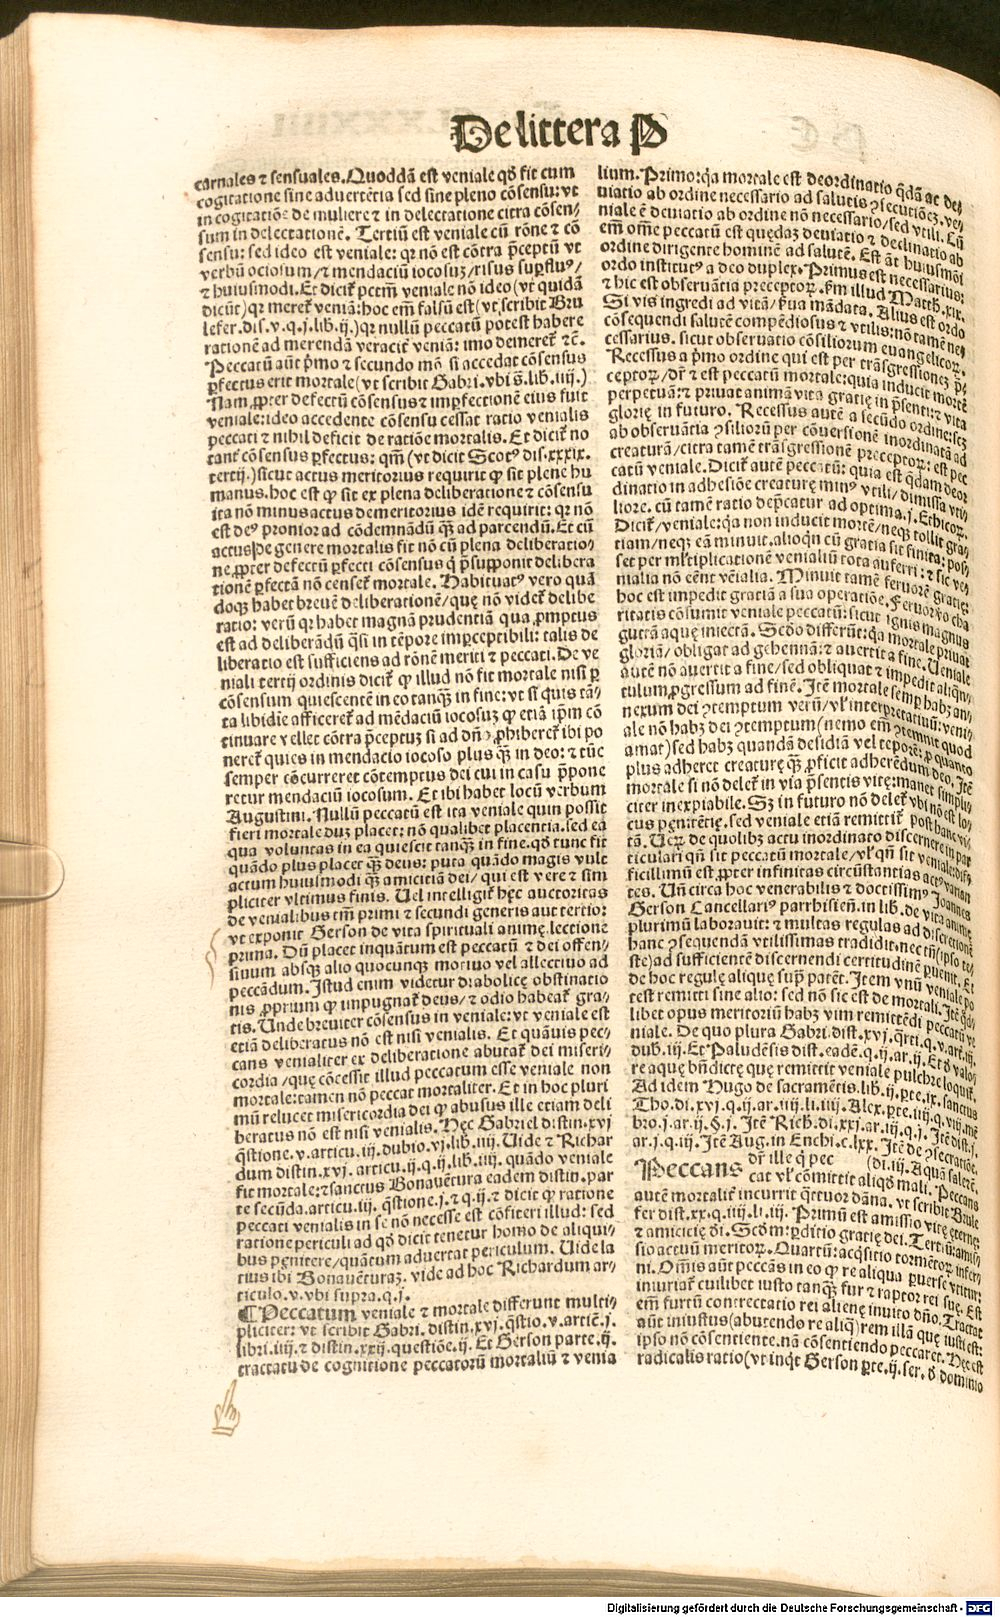 De littera P
carnales ⁊ sensuales. Quoddã est veniale qđ fit cum
cogitatione sine aduertẽtia sed sine pleno cõsensu: vt
in cogitatiõe de muliere ⁊ in delectatione citra cõsen/
sum in delectationẽ. Tertiũ est veniale cũ rõne ⁊ cõ
sensu: sed ideo est veniale: qr nõ est cõtra p̃ceptũ vt
verbũ ociosum/⁊ mendaciũ iocosuꝫ/risus supfluꝰ/
⁊ huiusmodi. Et dicit̃ pctm̃ veniale nõ ideo (vt quidã
dicũt) qr meret̃ veniã: hoc em̃ falsũ est (vt scribit Bru
lefer. dis. v. q. j. lib. ij.) qr nullũ peccatũ potest habere
rationẽ ad merendã veracit̃ veniã: imo demeret̃ ⁊c̃.
Peccatũ aũt p̃mo ⁊ secundo mõ si accedat cõsensus
ꝑfectus erit mortale (vt scribit Gabri. vbi s̃. lib. iiij.)
Nam ꝓpter defectũ cõsensus ⁊ imꝑfectionẽ eius fuit
veniale: ideo accedente cõsensu cessat ratio venialis
peccati ⁊ nihil deficit de ratiõe mortalis. Et dicit̃ no
tant̃ cõsensus ꝑfectus: qm̃ (vt dicit Scotꝰ dis. xxxix.
tertij.) sicut actus meritorius requirit ꝙ sit plene hu
manus. hoc est ꝙ sit ex plena deliberatione ⁊ cõsensu
ita nõ minus actus demeritorius idẽ requirit: qr nõ
est deꝰ pronior ad cõdemnãdũ q̃ꝫ ad parcendũ. Et cũ
actus de genere mortalis fit nõ cũ plena deliberatio/
ne ꝓpter defectũ ꝑfecti cõsensus q̃ p̃supponit delibera
tionẽ ꝑfectã nõ censet̃ mortale. Habituatꝰ vero quã
doqꝫ habet breuẽ deliberationẽ/quę nõ videt̃ delibe
ratio: verũ qr habet magnã prudentiã qua ꝓmptus
est ad deliberãdũ q̃si in tẽpore imꝑceptibili: talis de
liberatio est sufficiens ad rõnẽ meriti ⁊ peccati. De ve
niali tertij ordinis dicit̃ ꝙ illud nõ fit mortale nisi ꝑ
cõsensum quiescentẽ in eo tanqꝫ in fine: vt si quis tã/
ta libidie afficeret̃ ad mẽdaciũ iocosuꝫ ꝙ etiã ip̃m cõ
tinuare vellet cõtra p̃ceptuꝫ si ad dñ ꝓhiberet̃ ibi po
neret̃ quies in mendacio iocoso plus q̃ꝫ in deo: ⁊ tũc
semper cõcurreret cõtemptus dei cui in casu p̃pone
retur mendaciũ iocosum. Et ibi habet locũ verbum
Augustini. Nullũ peccatũ est ita veniale quin possit
fieri mortale duꝫ placet: nõ qualibet placentia. sed ea
qua voluntas in ea quiescit tanqꝫ in fine. qđ tunc fit
quãdo plus placet q̃ꝫ deus: puta quãdo magis vult
actum huiusmodi q̃ꝫ amicitiã dei/ qui est vere ⁊ sim
pliciter vltimus finis. Uel intelligit̃ hęc auctoritas
de venialibus tm̃ primi ⁊ secundi generis aut tertio:
vt exponit Gerson de vita spirituali animę. lectione
prima. Dũ placet inquãtum est peccatũ ⁊ dei offen/
siuum absqꝫ alio quocunqꝫ motiuo vel allectiuo ad
peccãdum. Istud enim videtur diabolicę obstinatio
nis ꝓprium ꝙ impugnat̃ deus/ ⁊ odio habeat̃ gra/
tis. Unde breuiter cõsensus in veniale: vt veniale est
etiã deliberatus nõ est nisi venialis. Et quãuis pec/
cans venialiter ex deliberatione abutat̃ dei miseri/
cordia/quę cõcessit illud peccatum esse veniale non
mortale: tamen nõ peccat mortaliter. Et in hoc pluri
mũ relucet misericordia dei ꝙ abusus ille etiam deli
beratus nõ est nisi venialis. Hęc Gabriel distin. xvj
q̃stione. v. articu. iij. dubio. vj. lib. iiij. Uide ⁊ Richar
dum distin. xvj. articu. ij. q. ij. lib. iiij. quãdo veniale
fit mortale: ⁊ sanctus Bonauẽtura eadem distin. par
te secũda. articu. iij. q̃stione. j. ⁊ q. ij. ⁊ dicit ꝙ ratione
peccati venialis in se nõ necesse est cõfiteri illud: sed
ratione periculi ad qđ dicit tenetur homo de aliqui/
bus pęnitere/quãtum aduertat periculum. Uide la
tius ibi Bonauẽturaꝫ. vide ad hoc Richardum ar/
ticulo. v. vbi supra. q. j.
¶ Peccatum veniale ⁊ mortale differunt multi/
pliciter: vt scribit Gabri. distin. xvj. q̃stio. v. artic̃. j.
libri. iiij. ⁊ distin. xxij. questiõe. ij. Et Gerson parte. ij.
tractatu de cognitione peccatorũ mortaliũ ⁊ venia
lium. Primo: q̃a mortale est deordinatio q̃dã ac de/
uiatio ab ordine necessario ad salutis ꝯsecutiõeꝫ. ve/
niale ẽ deuiatio ab ordine nõ necessario/sed vtili. Cũ
em̃ om̃e peccatũ est quędaꝫ deuiatio ⁊ declinatio ab
ordine dirigente hominẽ ad salutẽ. Est ãt huiusmõi
ordo institutꝰ a deo duplex. Primus est necessarius:
⁊ hic est obseruãtia preceptoꝝ. ẜm illud Matth. xix.
Si vis ingredi ad vitã/ẜua mãdata. Alius est ordo
cõsequendi salutẽ compẽdiosus ⁊ vtilis: nõ tamẽ ne/
cessarius. sicut obseruatio cõsiliorum euangelicoꝝ.
Recessus a p̃mo ordine qui est per trãsgressioneꝫ p̃/
ceptoꝝ/dr̃ ⁊ est peccatũ mortale: quia inducit mortẽ
perpetuã: ⁊ priuat animã vita gratię in p̃senti: ⁊ vita
glorię in futuro. Recessus autẽ a secũdo ordine: seꝫ
ab obseruãtia ꝯsiliorũ per cõuersionẽ inordinatã ad
creaturã/citra tamẽ trãsgressionẽ preceptoꝝ: est pec
catũ veniale. Dicit̃ autẽ peccatũ: quia est q̃dam deor
dinatio in adhesiõe creaturę minꝰ vtili/ dimissa vti/
liore. cũ tamẽ ratio dep̃catur ad optima. j. Ethicoꝝ.
Dicit̃/veniale: q̃a non inducit mortẽ/neqꝫ tollit gra/
tiam/neqꝫ eã minuit. alioqn cũ gratia sit finita: pos/
set per ml̃tiplicationẽ venialiũ tota auferri: ⁊ sic ve/
nialia nõ cẽnt vẽialia. Minuit tamẽ feruorẽ gratię:
hoc est impedit gratiã a sua operatiõe. Feruorẽ cha
ritatis cõsumit veniale peccatũ: sicut ignis magnus
guttã aquę iniectã. Scđo differũt: q̃a mortale priuat
gloriã/ obligat ad gehennã: ⁊ auertit a fine. Ueniale
autẽ nõ auertit a fine/sed obliquat ⁊ impedit aliqñ/
tulum ꝓgressum ad finẽ. Itẽ mortale semꝑ habꝫ an/
nexum dei ꝯtemptum verũ/vl̃ interpretatiuũ: veni/
ale nõ habꝫ dei ꝯtemptum (nemo em̃ ꝯtemnit quod
amat) sed habꝫ quandã desidiã vel teporẽ: ꝓ quanto
plus adheret creaturę q̃ꝫ ꝓficit adherẽdum deo. Itẽ
mortale si nõ delet̃ in via p̃sentis vitę: manet simpli/
citer inexpiabile. Sꝫ in futuro nõ delet̃ vbi nõ est lo/
cus pęnitẽtię. sed veniale etiã remittit̃ post hanc vi/
tã. Ueꝝ de quolibꝫ actu inordinato discernere in par
ticulari qñ sit peccatũ mortale/vl̃ qñ sit veniale: dif/
ficillimũ est ꝓpter infinitas circũstantias actꝰ varian
tes. Uñ circa hoc venerabilis ⁊ doctissimꝰ Joannes
Gerson Cancellariꝰ parrhisieñ. in lib. de vita animę
plurimũ laborauit: ⁊ multas regulas ad discretionẽ
hanc ꝯsequendam vtilissimas tradidit. nec tñ (ipso te/
ste) ad sufficientẽ discernendi certitudinẽ ꝑuenit. Et
de hoc regulę aliquę sup̃ patẽt. Item vnũ veniale po
test remitti sine alio: sed nõ sic est de mortali. Itẽ q̃d/
libet opus meritoriũ habꝫ vim remittẽdi peccatũ ve
niale. De quo plura Gabri. dist. xvj. q̃sti. q. v. art. iij.
dub. iij. Et Paludẽsis dist. eadẽ. q. ij. ar. ij. Et đ valo/
re aquę bñdictę quę remittit veniale pulchre loquit̃.
Ad idem Hugo de sacramẽtis. lib. ij. ꝑte. ix. sanctus
Tho. di. xvj. q. ij. ar. iij. li. iiij. Alex. ꝑte. iiij. q. viij. mẽ
bro. j. ar. ij. §. j. Itẽ Rich. di. xxj. ar. iij. q. j. Itẽ dist. j.
ar. j. q. iij. Itẽ Aug. in Enchi. c. lxx. Itẽ de ꝯsecratiõe.
(di. iij. Aquã salẽre.
Peccans dr̃ ille q̃ pec
cat vl̃ cõmittit aliqđ mali. Peccans
autẽ mortalit̃ incurrit q̃ttuor dãna. vt scribit Brule
fer dist. xx. q. iiij. li. iij. Primũ est amissio vitę ęternę
⁊ amicicię đi. Scđm: ꝑditio gratię dei. Tertiũ: amis/
sio actuũ meritoꝝ. Quartũ: acq̃sitio tormẽtoꝝ infer/
ni. Om̃is aũt peccãs in eo ꝙ re aliqua ꝑuerse vtitur:
iniuriat̃ cuilibet iusto tanqꝫ fur ⁊ raptor rei suę. Est
em̃ furtũ contrectatio rei alienę inuito dño. Tractat
aũt iniustus (abutendo re aliq̃) rem illã quę iusti est:
ipso nõ cõsentiente. nã cõsentiendo peccaret. Hęc est
radicalis ratio (vt inq̃t Gerson ꝑte. ij. ser. đ dominio
Digitalisierung gefördert durch die Deutsche Forschungsgemeinschaft - DFG